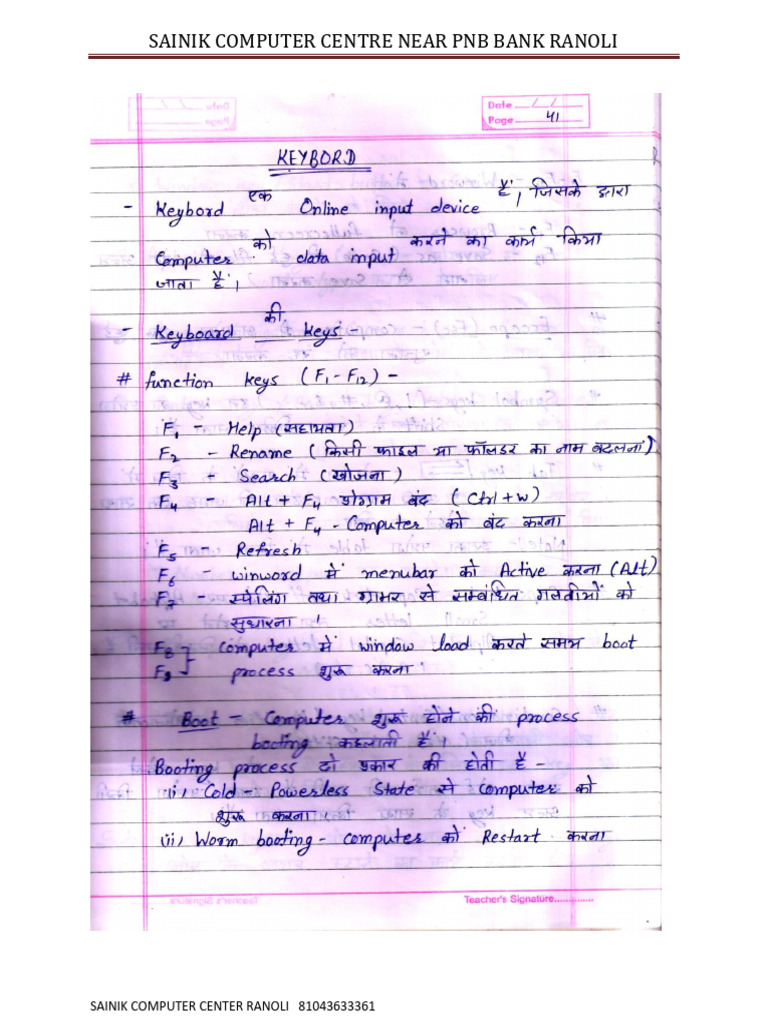 SAINIK COMPUTER CENTRE NEAR PNB BANK RANOLI
Date __/__/__
Page 41
KEYBORD
- Keybord एक Online input device हैं, जिसके द्वारा
Computer को data input करने का कार्य किया
जाता हैं।
- Keyboard की keys :-
# function keys (F1-F12) -
F1 - Help (सहायता)
F2 - Rename (किसी फाइल या फॉलडर का नाम बदलना)
F3 - Search (खोजना)
F4 - Alt + F4 प्रोग्राम बंद (Ctrl+W)
Alt + F4 - Computer को बंद करना
F5 - Refresh
F6 - winword में menubar को Active करना (Alt)
F7 - स्पेलिंग तथा ग्रामर से सम्बंधित गलतीओं को
सुधारना ।
F8 computer में window load करते समय boot
F9 process शुरू करना ।
# Boot - Computer शुरू होने की process
booting कहलाती हैं।
Booting process दो प्रकार की होती हैं -
(i) Cold - Powerless State से computer को
शुरू करना ।
(ii) Worm booting - computer को Restart करना
Teacher's Signature..............
SAINIK COMPUTER CENTER RANOLI 81043633361